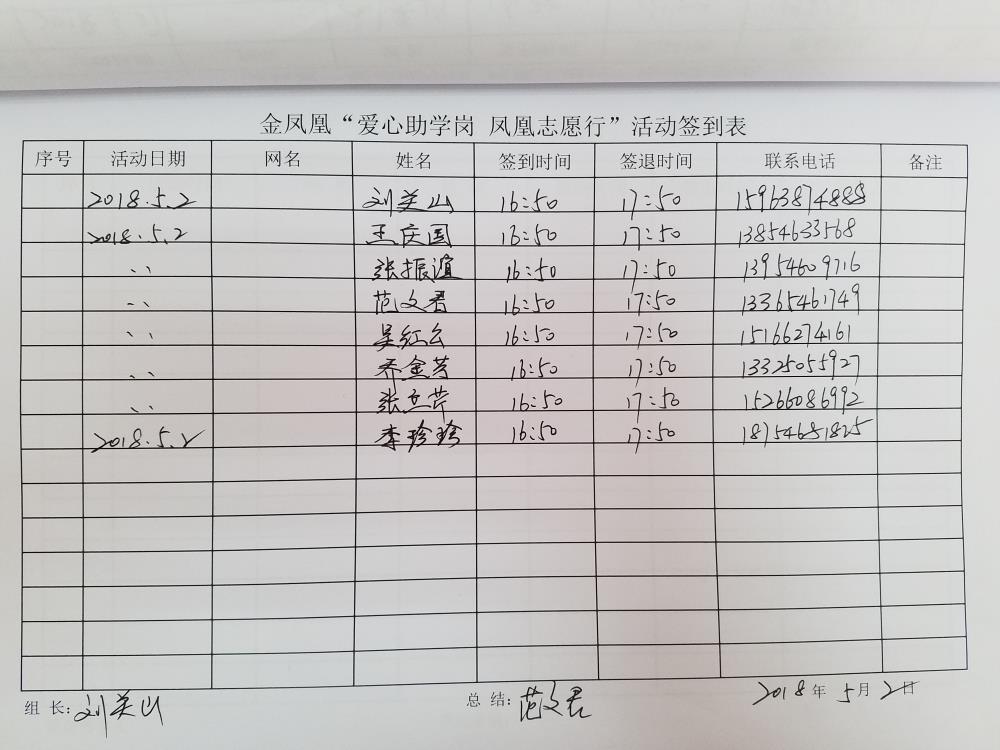 金凤凰“爱心助学岗 凤凰志愿行”活动签到表
序号 活动日期 网名 姓名 签到时间 签退时间 联系电话 备注
2018.5.2 刘美山 16:50 17:50 15963874888
2018.5.2 王庆国 16:50 17:50 13854633568
、、 张振谊 16:50 17:50 13954609716
、、 范文君 16:50 17:50 13365461749
、、 吴红云 16:50 17:50 15166274161
、、 齐金芳 16:50 17:50 13325055927
、、 张立芹 16:50 17:50 15266086992
2018.5.2 李珍珍 16:50 17:50 18754681825
组 长: 刘美山 总 结: 范文君 2018 年 5 月 2 日